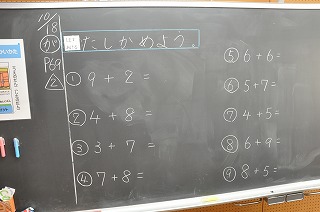 10/18
が
たしかめよう。
P69
2
① 9 + 2 =
② 4 + 8 =
③ 3 + 7 =
④ 7 + 8 =
⑤ 6 + 6 =
⑥ 5 + 7 =
⑦ 4 + 5 =
⑧ 6 + 9 =
⑨ 8 + 5 =